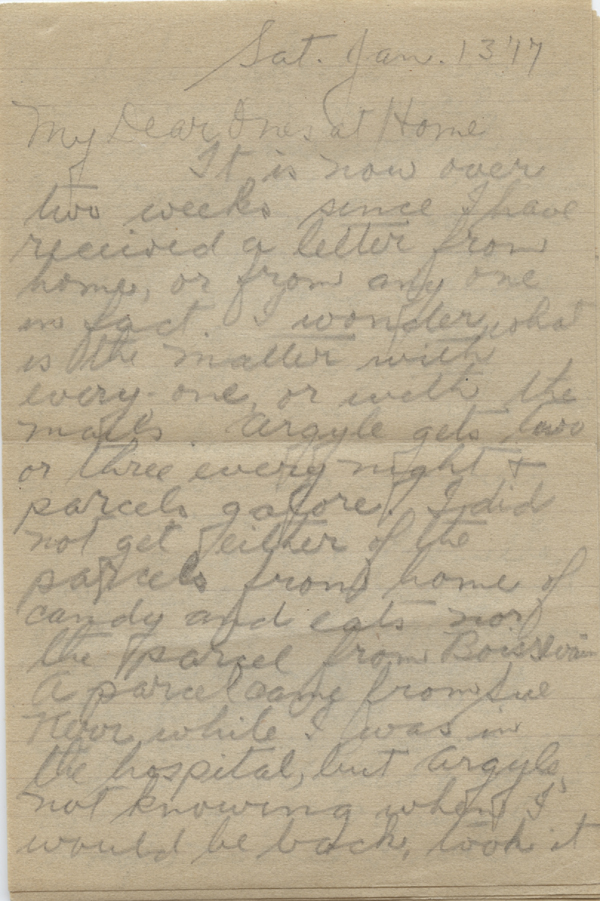 Sat. Jan. 13 '17
My Dear Ones at Home
It is now over
two weeks since I have
received a letter from
home, or from any one
in fact. I wonder what
is the matter with
every-one, or with the
mails. Argyle gets two
or three every night +
parcels galore. I did
not get either of the
parcels from home of
candy and eats nor
the parcel from Boissevain
A parcel came from Sue
while I was in
the hospital, but Argyle,
not knowing when I
would be back, took it